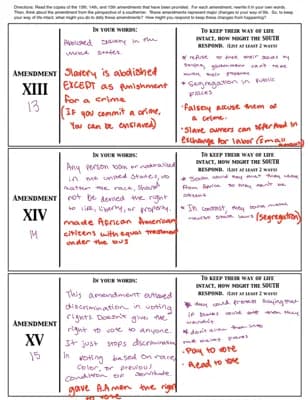 Directions: Read the copies of the 13th, 14th, and 15th amendments that have been provided. For each amendment, rewrite it in your own words.
Then, think about the amendment from the perspective of a southerner. These amendments represent major changes to your way of life. So, to keep
your way of life intact, what might you do to defy these amendments? How might you respond to keep these changes from happening?
IN YOUR WORDS:
TO KEEP THEIR WAY OF LIFE
INTACT, HOW MIGHT THE SOUTH
RESPOND. (LIST AT LEAST 2 WAYS)
AMENDMENT
XIII
13
Abolished slavery in the
united states.
Slavery is abolished
EXCEPT as punishment
for a crime
(IF you commit a crime,
You can be enslaved)
* refuse to free their slaves by
saying, government can't take
away their property
* Segregation in public
places
- Falsely accuse them of
a crime.
- Slave owners can offer food in
exchange for labor (small
IN YOUR WORDS:
TO KEEP THEIR WAY OF LIFE
INTACT, HOW MIGHT THE SOUTH
RESPOND. (LIST AT LEAST 2 WAYS)
AMENDMENT
XIV
14
Any person born or naturalized
in the united states, no
matter the race, should
not be denied the right
to life, liberty, or property.
made African American
citizens with equal treatment
under the law
* South could say that they were
from Africa so they can't be
citizens
* In contrast, they some make
harsh laws (segregation)
IN YOUR WORDS:
TO KEEP THEIR WAY OF LIFE
INTACT, HOW MIGHT THE SOUTH
RESPOND. (LIST AT LEAST 2 WAYS)
AMENDMENT
XV
15
This amendment
discrimination in voting
rights. Doesn't give the
right to vote to anyone.
It just stops discrimination
in voting based on race,
color, or previous
condition of servitude.
gave A.Amen the right
to vote
* they could protest saying that
if blacks could vote then they
* don't even them into
- Pay to vote
- Read to vote